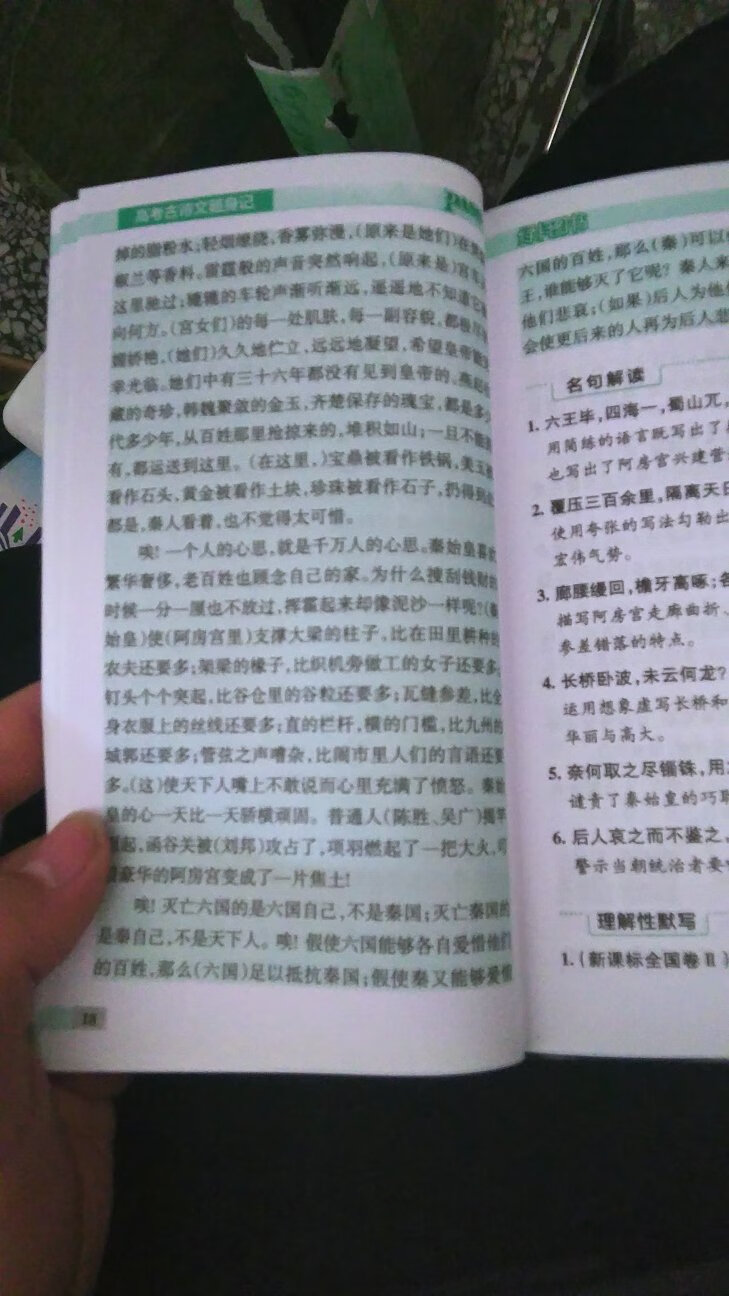 高考古诗文随身记
掉的脂粉水;轻烟缭绕,香雾弥漫,(原来是她们)在
椒兰等香料。雷霆般的声音突然响起,(原来是)宫
这里驰过;辘辘的车轮声渐听渐远,遥遥地不知道它
向何方。(宫女们)的每一处肌肤,每一副容貌,都极
媚娇艳,(她们)久久地伫立,远远地凝望,希望皇帝能
幸光临。她们中有三十六年都没有见到皇帝的。燕赵
藏的奇珍,韩魏聚敛的金玉,齐楚保存的瑰宝,都是多少
代多少年,从百姓那里抢掠来的,堆积如山;一旦不能
有,都运送到这里。(在这里,)宝鼎被看作铁锅,美玉
看作石头,黄金被看作土块,珍珠被看作石子,扔得到处
都是,秦人看着,也不觉得太可惜。
唉!一个人的心思,就是千万人的心思。秦始皇喜欢
繁华奢侈,老百姓也顾念自己的家。为什么搜刮钱财的
时候一分一厘也不放过,挥霍起来却像泥沙一样呢?(秦
始皇)使(阿房宫里)支撑大梁的柱子,比在田里耕种的
农夫还要多;架梁的椽子,比织机旁做工的女子还要多;
钉头个个突起,比谷仓里的谷粒还要多;瓦缝参差,比全
身衣服上的丝线还要多;直的栏杆,横的门槛,比九州的
城郭还要多;管弦之声嘈杂,比闹市里人们的言语还要
多。(这)使天下人嘴上不敢说而心里充满了愤怒。秦始
皇的心一天比一天骄横顽固。普通人(陈胜、吴广)揭竿
起,函谷关被(刘邦)攻占了,项羽燃起了一把大火,可
豪华的阿房宫变成了一片焦土!
唉!灭亡六国的是六国自己,不是秦国;灭亡秦国的
是秦自己,不是天下人。唉!假使六国能够各自爱惜他们
的百姓,那么(六国)足以抵抗秦国;假使秦又能够爱惜
18
六国的百姓,那么(秦)可以
王,谁能够灭了它呢?秦人来
他们悲哀;(如果)后人为他
会使更后来的人再为后人悲
名句解读
1.六王毕,四海一,蜀山兀,
用简练的语言既写出了
也写出了阿房宫兴建营
2.覆压三百余里,隔离天日
使用夸张的写法勾勒出
宏伟气势。
3.廊腰缦回,檐牙高啄;各
描写阿房宫走廊曲折、
参差错落的特点。
4.长桥卧波,未云何龙?
运用想象虚写长桥和
华丽与高大。
5.奈何取之尽锱铢,用
谴责了秦始皇的巧取
6.后人哀之而不鉴之,
警示当朝统治者要
理解性默写
1.(新课标全国卷Ⅱ)